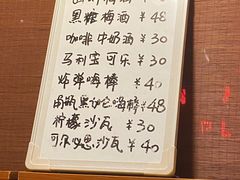 梅酒
黑糖梅酒 ¥48
咖啡牛奶酒 ¥30
马利宝可乐 ¥30
炸弹嗨棒 ¥40
黑 嗨棒 ¥48
柠檬沙瓦 ¥30
可尔必思沙瓦 ¥40